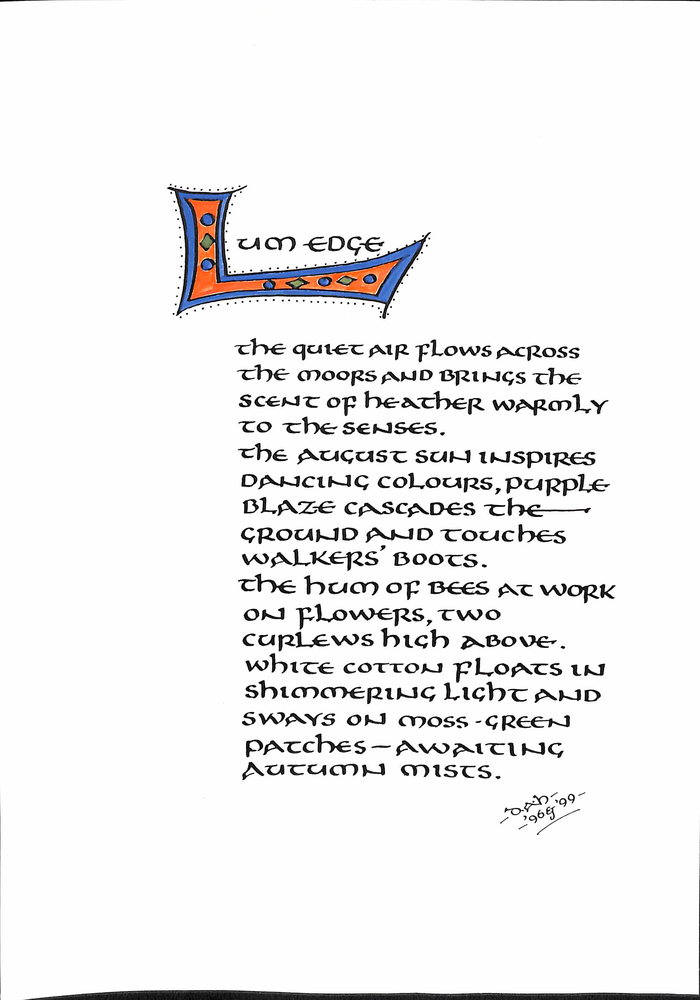 Lum Edge
the quiet air flows across
the moors and brings the
scent of heather warmly
to the senses.
the August sun inspires
dancing colours, purple
blaze cascades the
ground and touches
walkers' boots.
the hum of bees at work
on flowers, two
curlews high above.
white cotton floats in
shimmering light and
sways on moss-green
patches – awaiting
Autumn mists.
'96 & '99